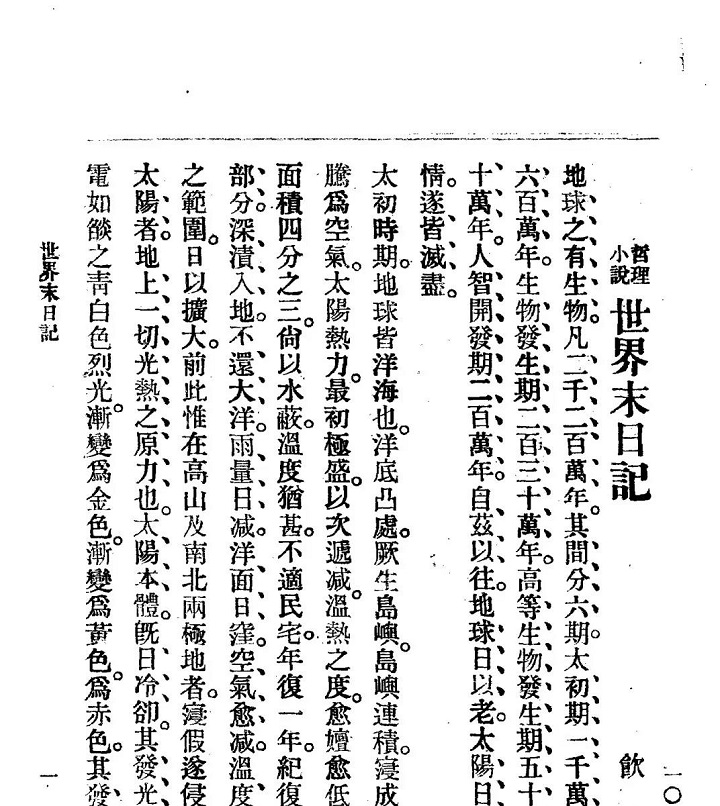 哲理小說 世界末日記 飮 一〇
地球之有生物。凡二千二百萬年。其間分六期。太初期一千萬
六百萬年。生物發生期二百三十萬年。高等生物發生期五十
十萬年。人智開發期二百萬年。自茲以往。地球日以老。太陽日
情。遂皆滅盡。
太初時期。地球皆洋海也。洋底凸處。厥生島嶼。島嶼連積。寖成
騰爲空氣。太陽熱力。最初極盛。以次遞减。溫熱之度。愈嬗愈低
面積四分之三。尙以水蔽。溫度猶甚。不適民宅。年復一年。紀復
部分。深瀆入地。不還大洋。雨量日减。洋面日窪。空氣愈减。溫度
之範圍。日以擴大。前此惟在高山及南北兩極地者。寖假遂侵
太陽者。地上一切光熱之原力也。太陽本體。旣日冷卻。其發光
電如燄之靑白色烈光。漸變爲金色。漸變爲黃色。爲赤色。其發
世界末日記
一